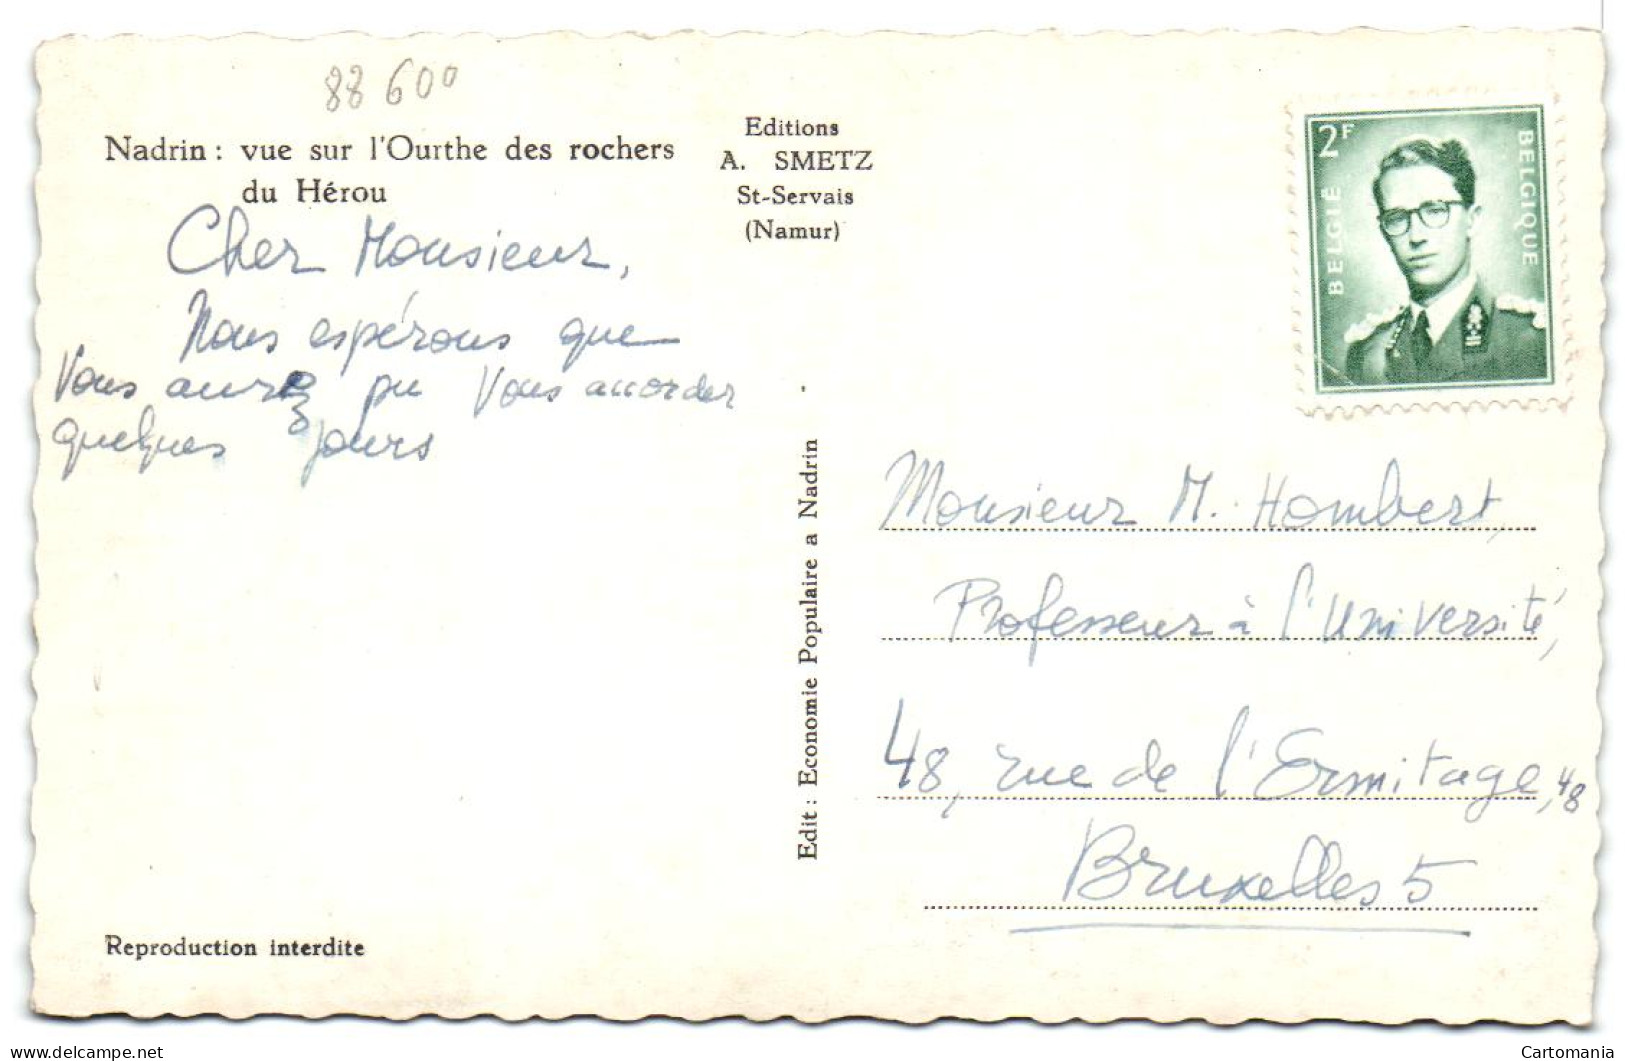 88 600
Nadrin : vue sur l'Ourthe des rochers
du Hérou
Editions
A. SMETZ
St-Servais
(Namur)
2F
BELGIË
BELGIQUE
Cher Monsieur,
Nous espérons que
Vous aurez pu Vous accorder
quelques jours
Edit : Economie Populaire a Nadrin
Monsieur M. Hombert,
Professeur à l'Université,
48, rue de l'Ermitage, 48
Bruxelles 5
Reproduction interdite
www.delcampe.net
Cartomania